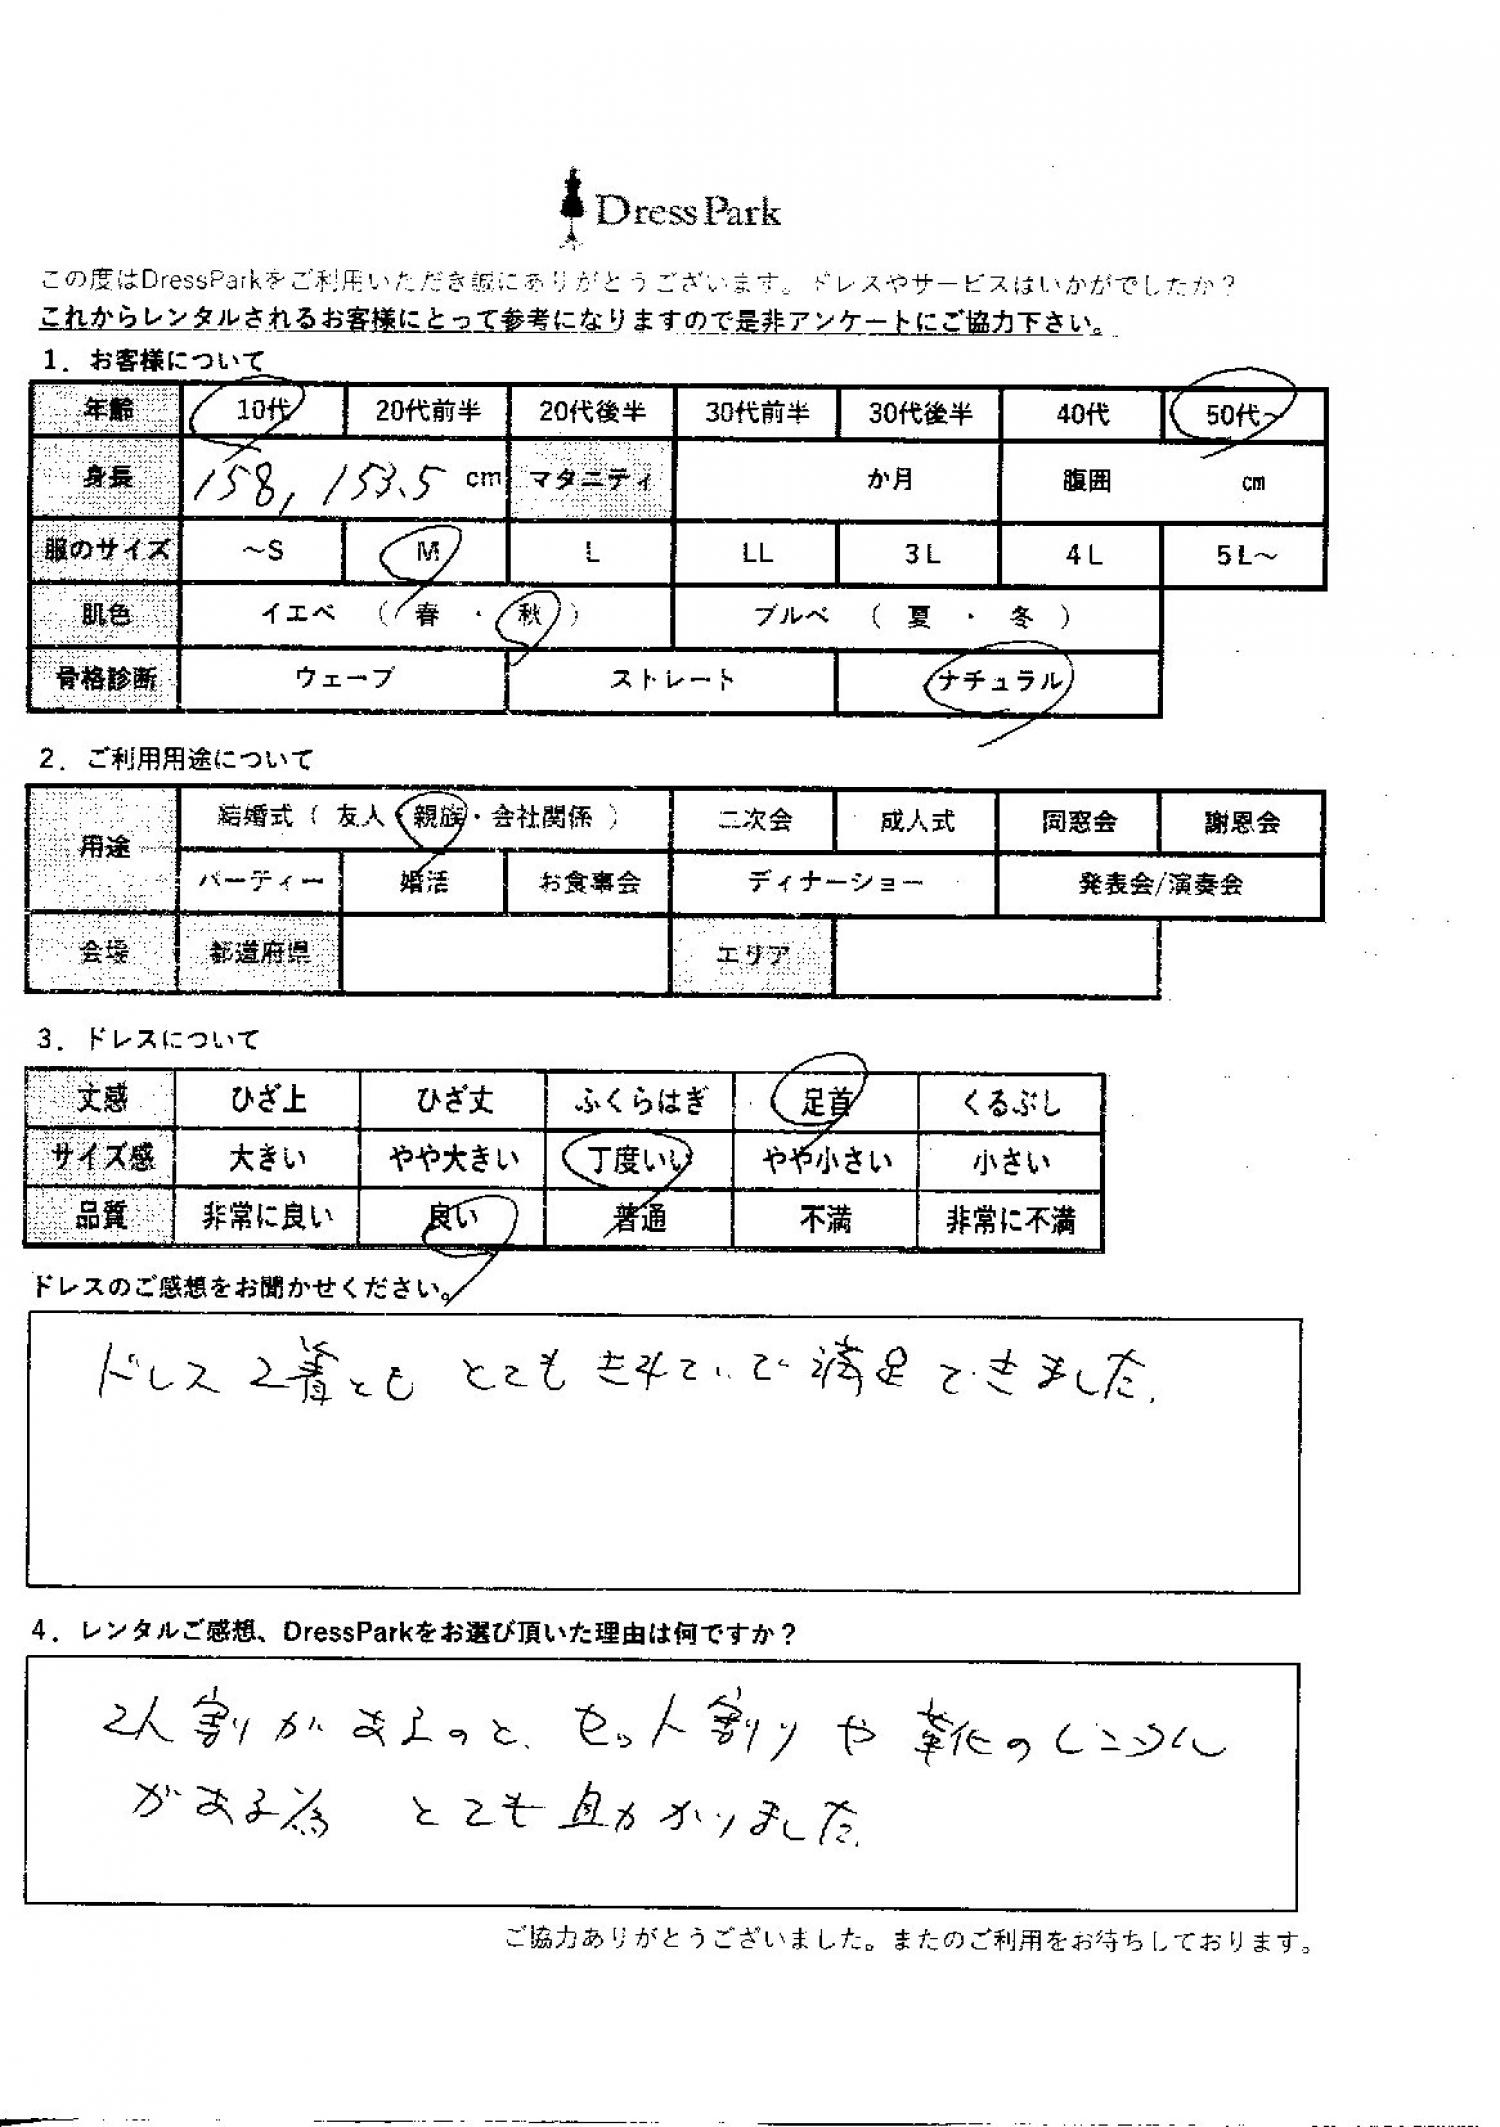 DressPark
この度はDressParkをご利用いただき誠にありがとうございます。ドレスやサービスはいかがでしたか？
これからレンタルされるお客様にとって参考になりますので是非アンケートにご協力下さい。
1．お客様について
年齢 10代 20代前半 20代後半 30代前半 30代後半 40代 50代~
身長 158, 153.5 cm マタニティ か月 腹囲 cm
服のサイズ ～S M L LL 3L 4L 5L～
肌色 イエベ （ 春 ・ 秋 ） ブルベ （ 夏 ・ 冬 ）
骨格診断 ウェーブ ストレート ナチュラル
2．ご利用用途について
用途 結婚式（ 友人・親族・会社関係 ） 二次会 成人式 同窓会 謝恩会
パーティー 婚活 お食事会 ディナーショー 発表会/演奏会
会場 都道府県 エリア
3．ドレスについて
丈感 ひざ上 ひざ丈 ふくらはぎ 足首 くるぶし
サイズ感 大きい やや大きい 丁度いい やや小さい 小さい
品質 非常に良い 良い 普通 不満 非常に不満
ドレスのご感想をお聞かせください。
ドレス2着とも とても きれいで 満足できました.
4．レンタルご感想、DressParkをお選び頂いた理由は何ですか？
2人割りがあるのと、セット割りや 靴のレンタル
がある為 とても助かりました.
ご協力ありがとうございました。またのご利用をお待ちしております。